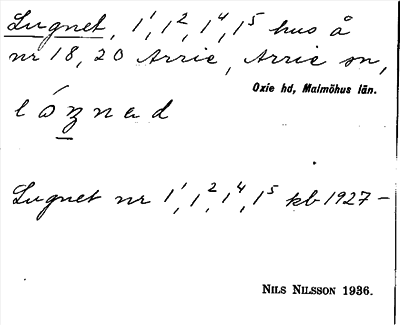 Lugnet, 1¹, 1², 1⁴, 1⁵ hus å
nr 18, 20 Arrie, Arrie sn,
Oxie hd, Malmöhus län.
Lugnet nr 1¹, 1², 1⁴, 1⁵ kb 1927-
NILS NILSSON 1936.